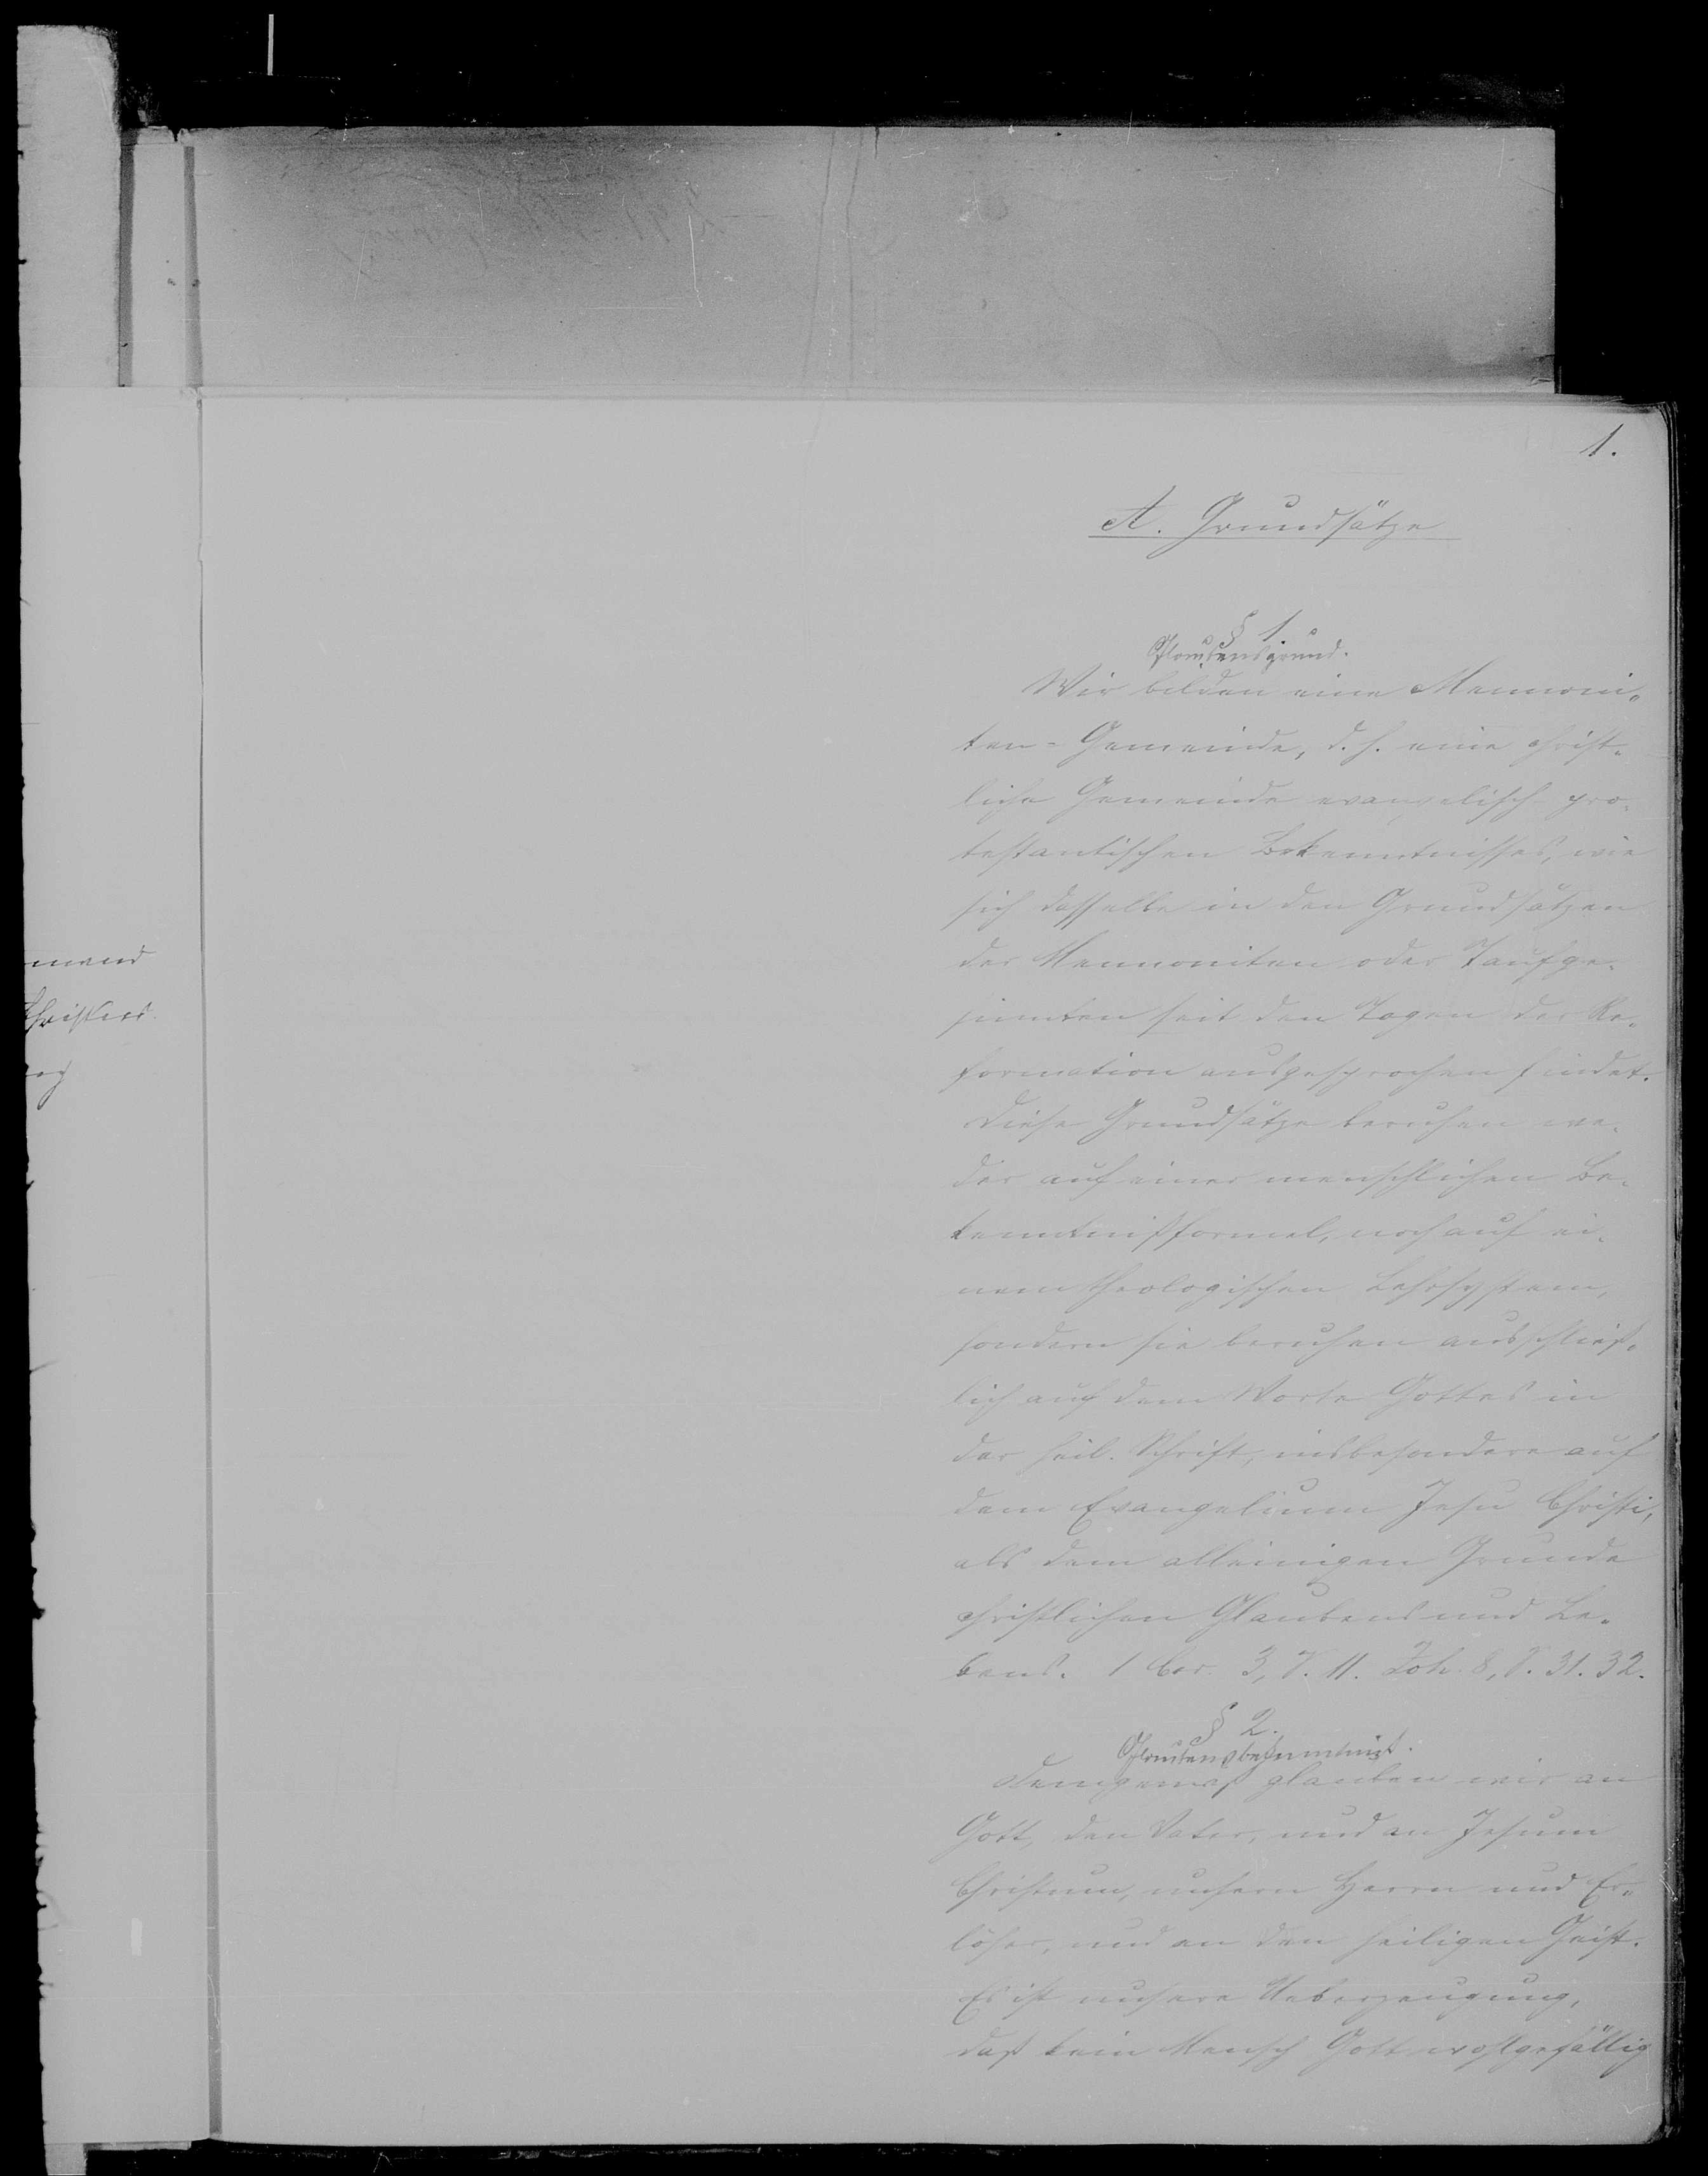 1.
A. Grundsätze
§ 1.
Glaubensgrund.
Wir bilden eine Mennoni-
ten-Gemeinde, d. h. eine christ-
liche Gemeinde evangelisch pro-
testantischen Bekenntnisses, wie
sich dasselbe in den Grundsätzen
der Mennoniten oder Taufge-
sinnten seit den Tagen der Re-
formation ausgesprochen findet.
Diese Grundsätze beruhen we-
der auf einer menschlichen Be-
kenntnißformel, noch auf ei-
nem theologischen Lehrsystem,
sondern sie beruhen ausschließ-
lich auf dem Worte Gottes in
der heil. Schrift, insbesondere auf
dem Evangelium Jesu Christi,
als dem alleinigen Grunde
christlichen Glaubens und Le-
bens. 1 Cor. 3, V. 11. Joh. 8, V. 31. 32.
§ 2.
Glaubensbekenntniß.
Demgemäß glauben wir an
Gott, den Vater, und an Jesum
Christum, unsern Herrn und Er-
löser, und an den heiligen Geist.
Es ist unsere Ueberzeugung,
daß kein Mensch Gott wohlgefällig